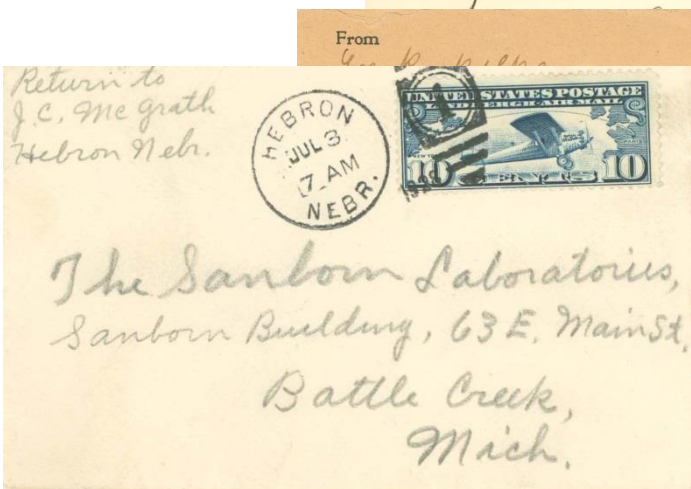 From
Return to
J. C. McGrath
Hebron Nebr.
HEBRON
JUL 3
7 AM
NEBR.
1
UNITED STATES POSTAGE
LINDBERGH AIR MAIL
10 CENTS 10
The Sanborn Laboratories,
Sanborn Building, 63 E. Main St.
Battle Creek,
Mich.